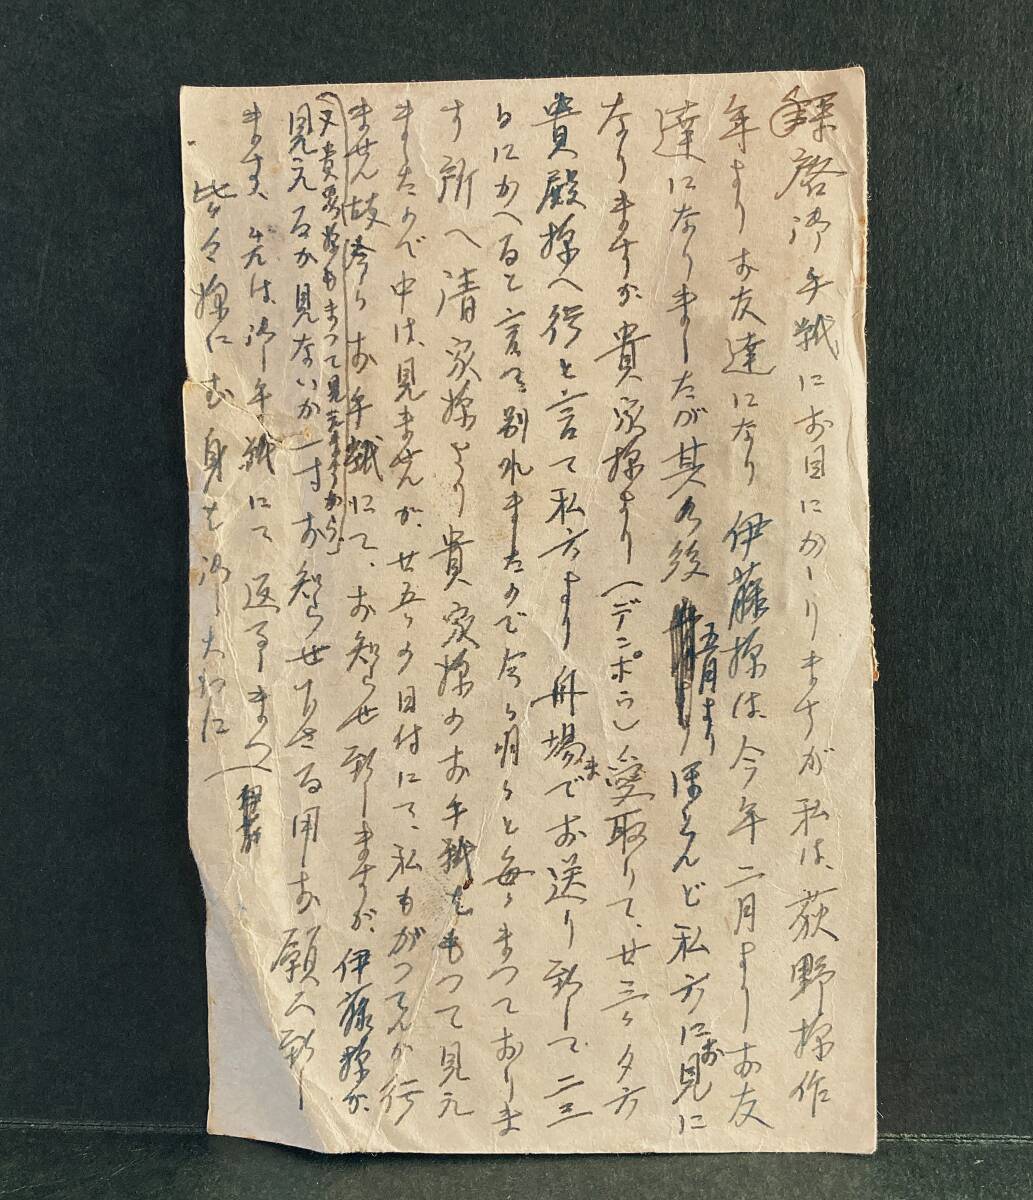 拝啓御手紙にお目にかゝりますが私は、荻野様昨
年よりお友達になり 伊藤様は、今年二月よりお友
達になりましたが其の後 五月より ほとんど私方にお見に
なりますが、貴家様より(デンポウ)受取りて、廿三日夕方
貴殿様へ行と言て私方より舟場まで お送り致して二三
日にかへると言て別れましたので今日明日と毎日まつておりま
す所へ清家様より貴家様のお手紙をもつて見え
ましたので中は、見ませんが、廿五日の日付にて、私もがつてんが行
ません故 お手紙にて、お知らせ致しますが、伊藤様が、
(又貴家様もまつて見えますから)
見えるか見ないか一寸お知らせ下さる用お願へ致し
ます、先は、御手紙にて返事まつ
皆々様にお身を御大切に